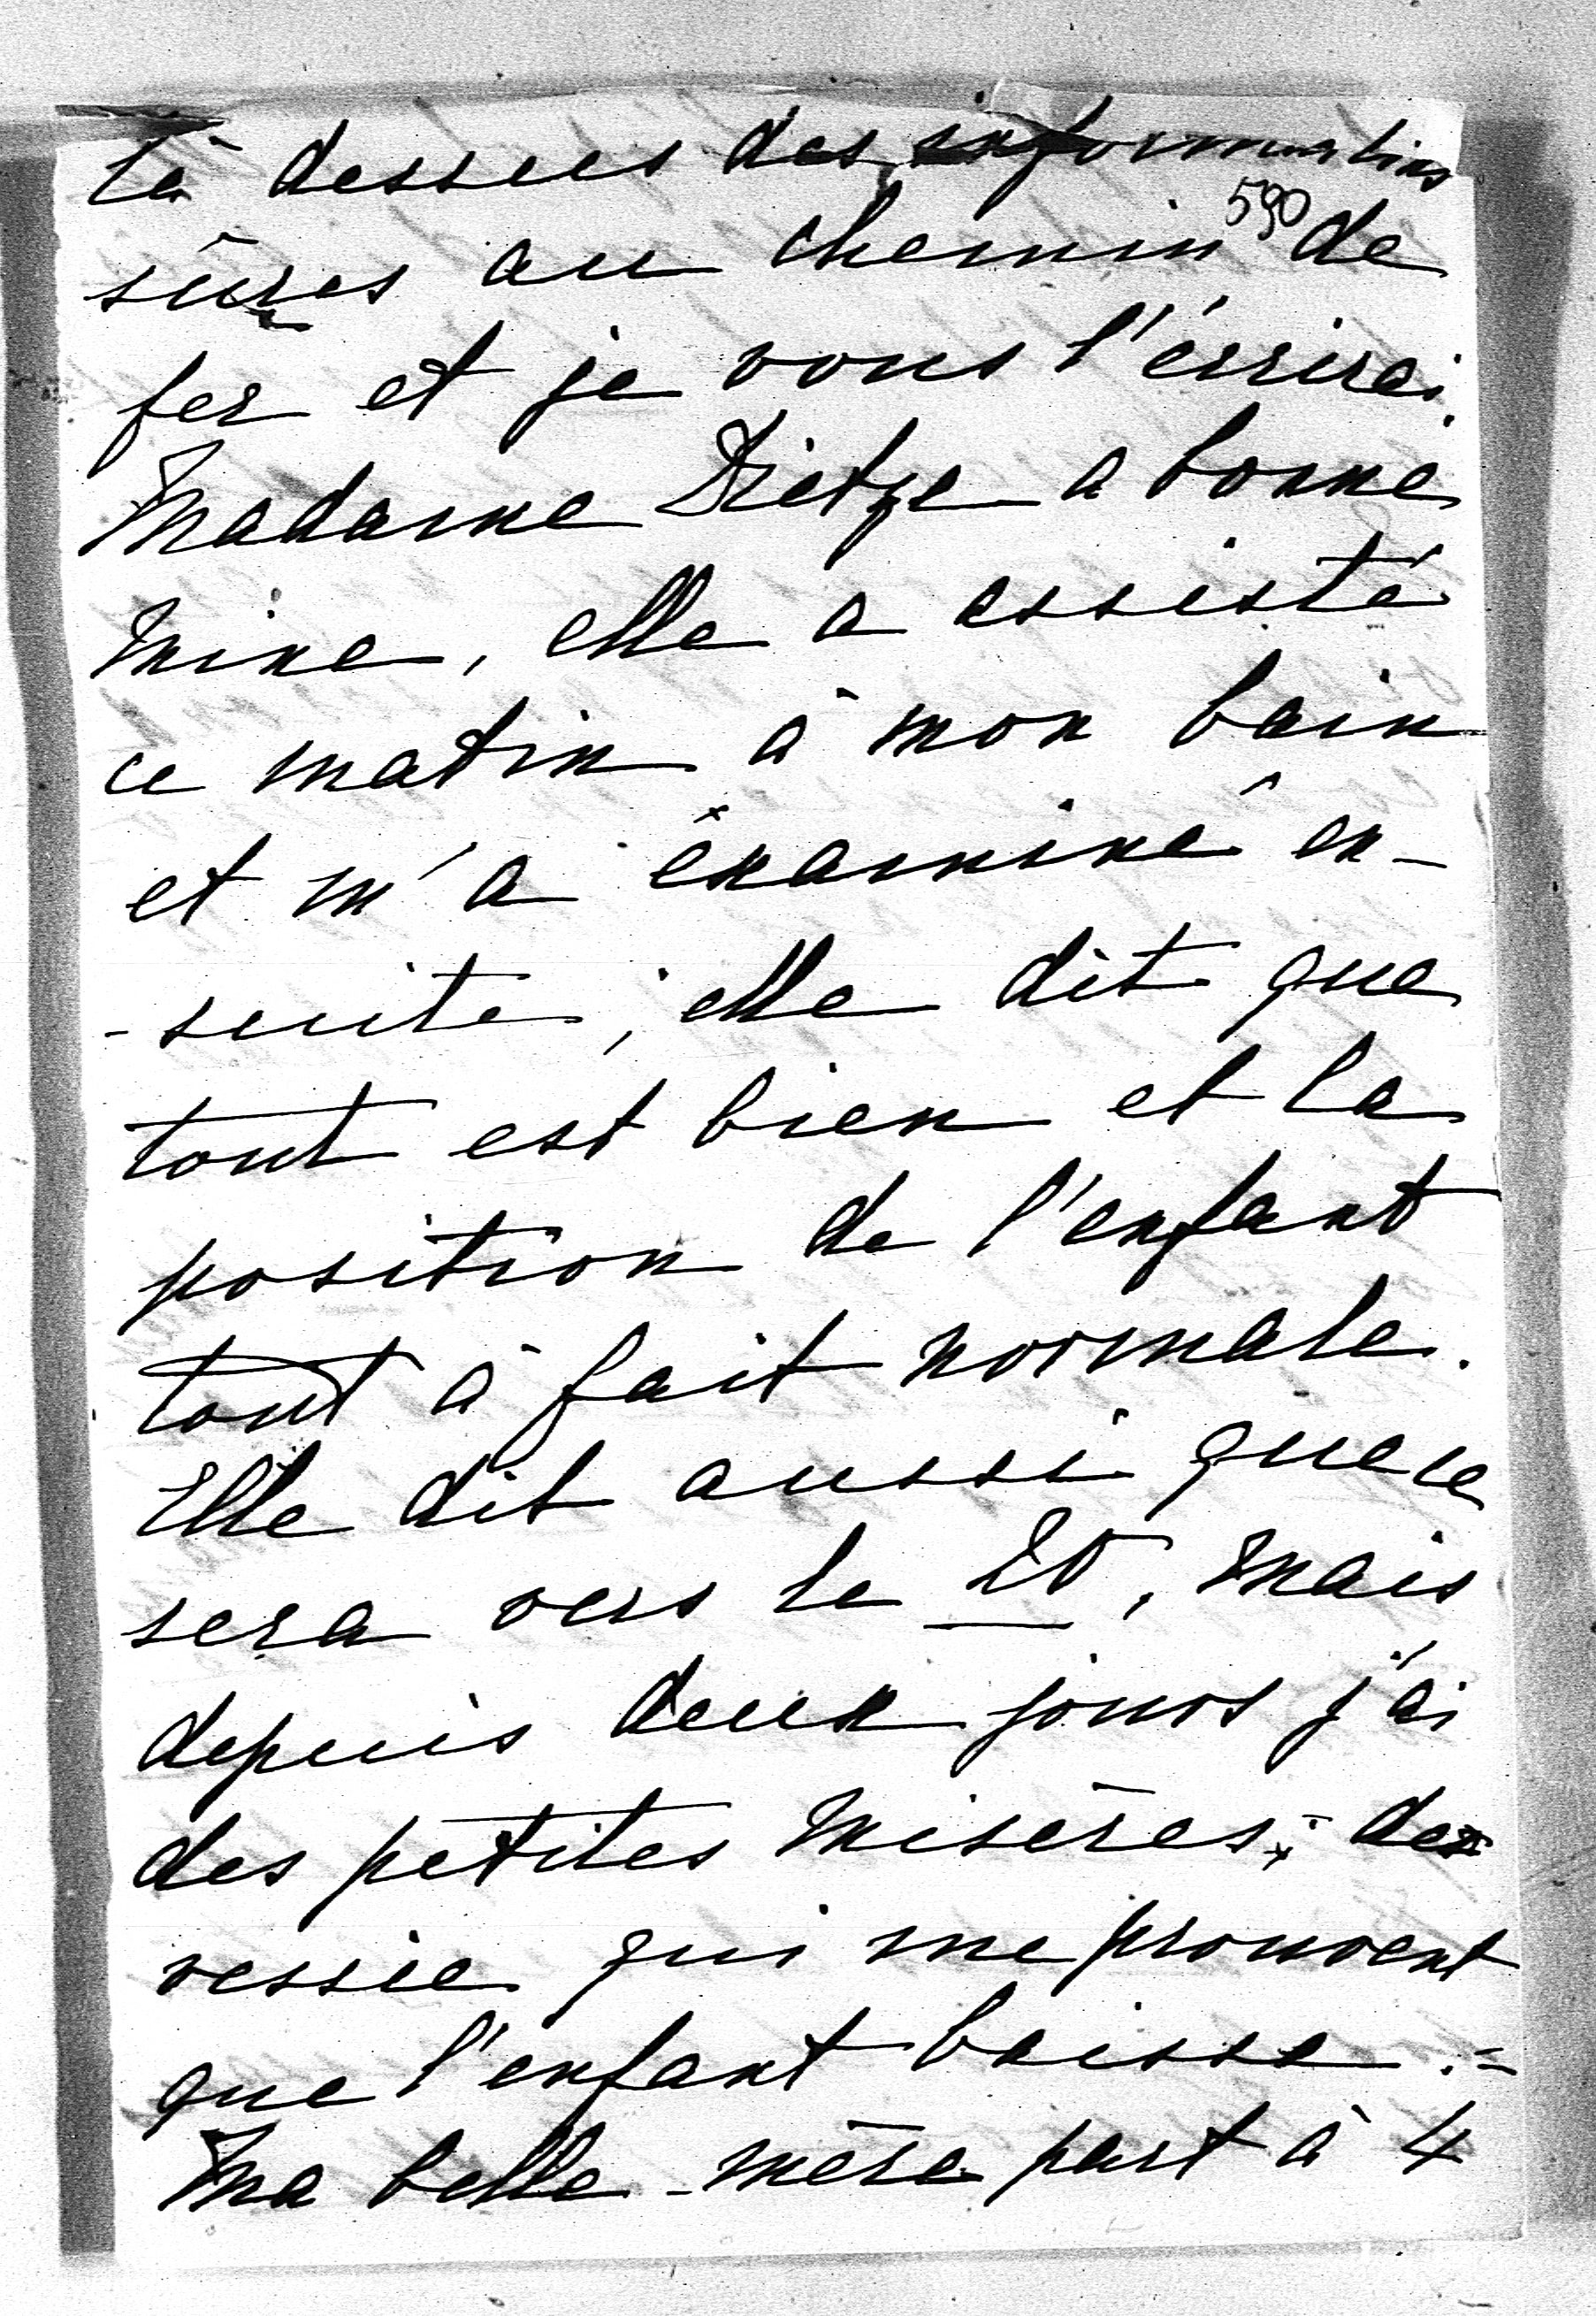 là dessus des informations
590
sûres au chemin de
fer et je vous l'écrirai.
Madame Dietze a bonne
mine, elle a assisté
ce matin à mon bain
et m'a éxaminé en-
-suite; elle dit que
tout est bien et la
position de l'enfant
tout à fait normale.
Elle dit aussi que ce
sera vers le 20, mais
depuis deux jours j'ai
des petites misères; de
vessie qui me prouvent
que l'enfant baisse.=
Ma belle-mère part à 4